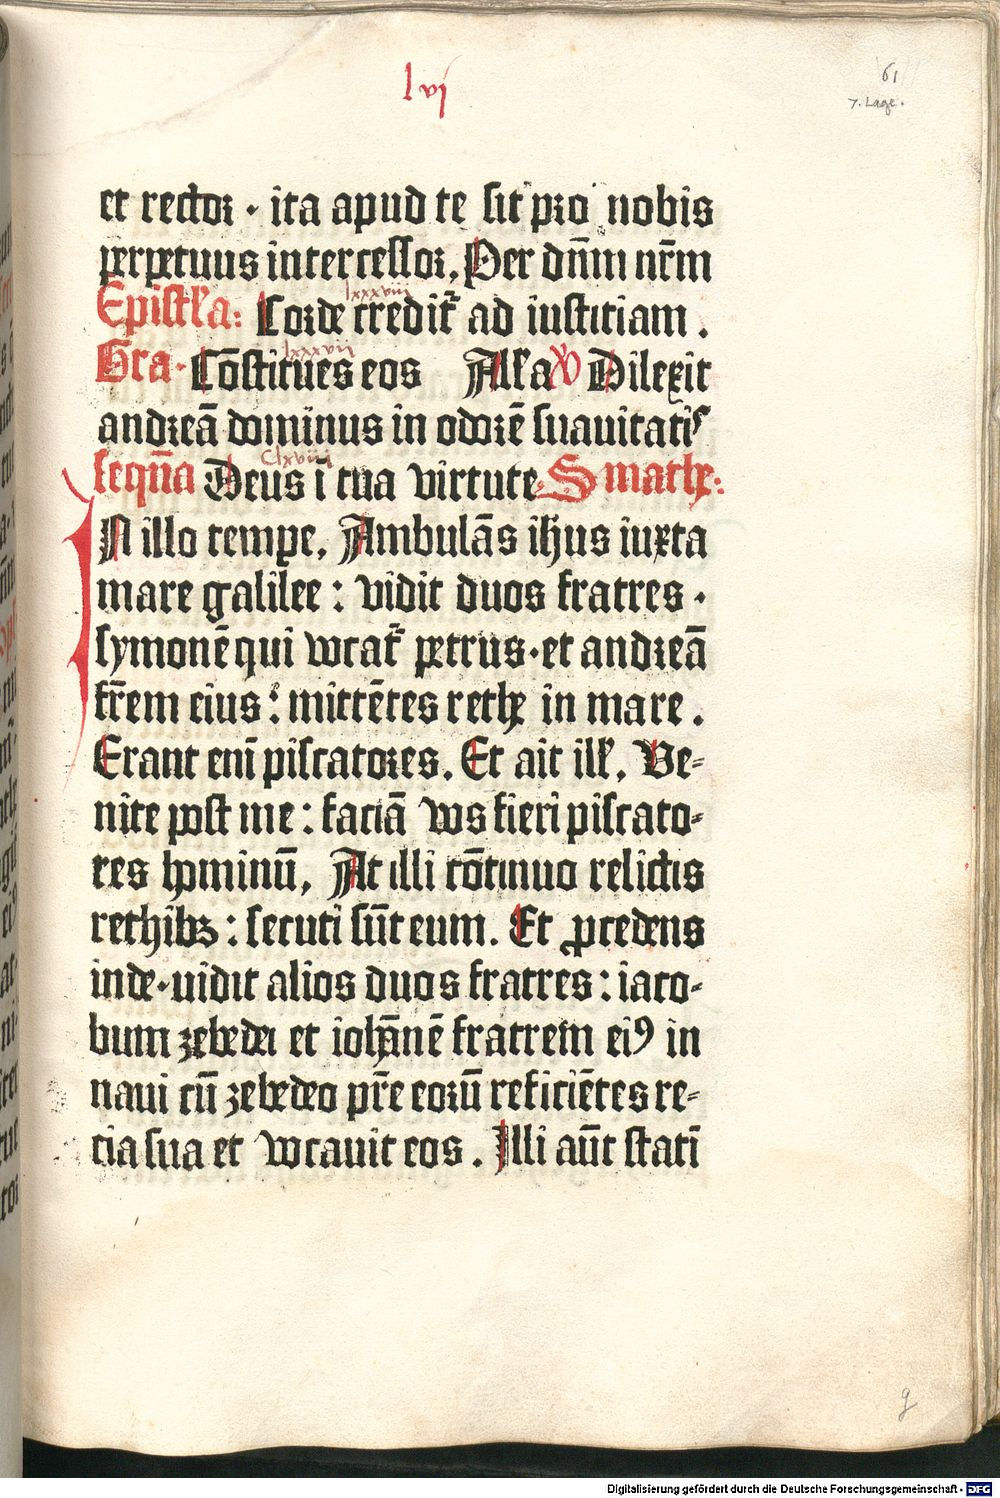 lvi
61
7. Lage.
et rector · ita apud te sit pro nobis
perpetuus intercessor. Per dn̄m nr̄m
lxxxviii
Epistl'a: Corde credit᷑ ad iusticiam .
lxxxvii
Gra· Cōstitues eos All'a V Dilexit
andreā dominus in odorē suauitatis
Clxviii
sequn̄a Deus ī tua virtute S math:
IN illo tempe. Ambulās ihus iuxta
mare galilee : vidit duos fratres .
symonē qui vocat᷑ petrus · et andreā
fr̄em eius : mittētes rethe in mare .
Erant enī piscatores. Et ait ill'. Ve-
nite post me : faciā vos fieri piscato-
res hominū. At illi cōtinuo relictis
rethibꝫ : secuti sūt eum. Et ꝓcedens
inde · uidit alios duos fratres : iaco-
bum zebedei et iohānē fratrem eiꝰ in
naui cū zebedeo pr̄e eorū reficiētes re-
cia sua et vocauit eos . Illi aūt statī
g
Digitalisierung gefördert durch die Deutsche Forschungsgemeinschaft - DFG